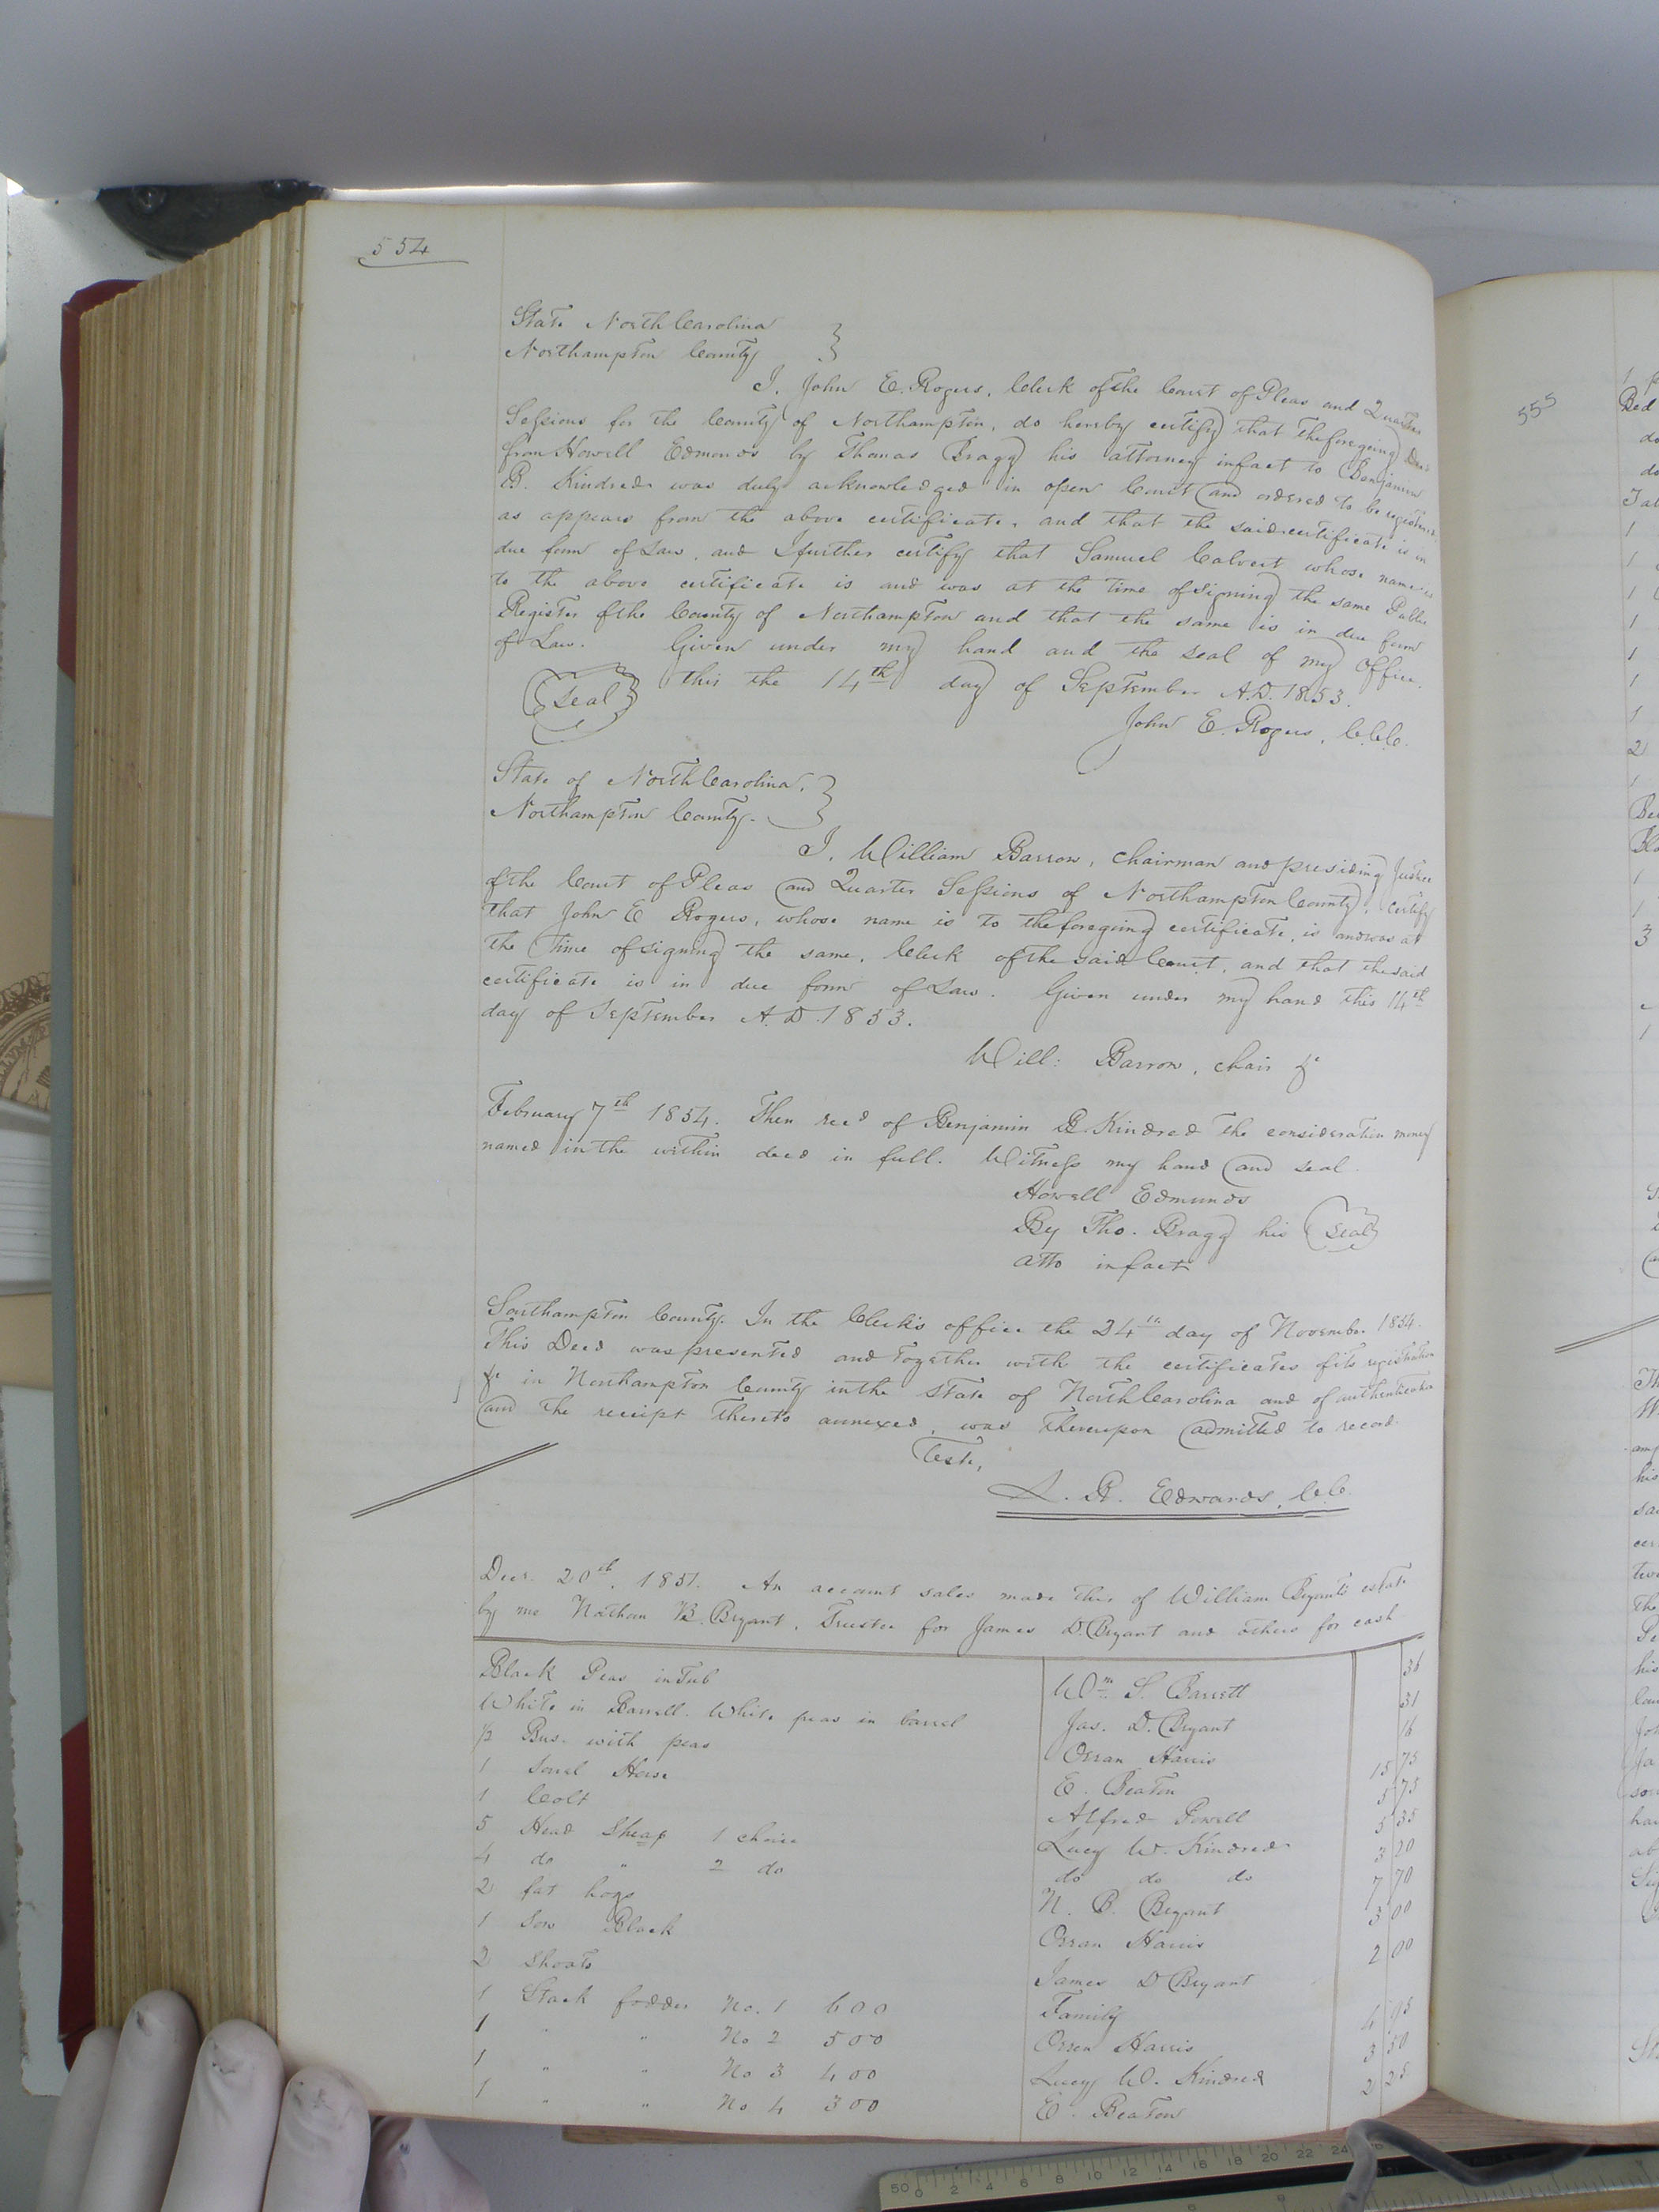 554
State North Carolina
Northampton County }
I. John E. Rogers, Clerk of the Court of Pleas and Quarter
Sessions for the County of Northampton, do hereby certify that the foregoing Deed
from Howell Edmonds by Thomas Bragg his attorney in fact to Benjamin
B. Kindred was duly acknowledged in open Court and ordered to be registered
as appears from the above certificate, and that the said certificate is in
due form of Law, and I further certify that Samuel Calvert whose name is
to the above certificate is and was at the time of signing the same Public
Register of the County of Northampton and that the same is in due form
of Law. Given under my hand and the seal of my office
(Seal) this the 14th day of September A.D. 1853.
John E. Rogers, C.C.C.
State of North Carolina, }
Northampton County.
I, William Barrow, chairman and presiding Justice
of the Court of Pleas and Quarter Sessions of Northampton County, certify
that John E Rogers, whose name is to the foregoing certificate, is and was at
the time of signing the same, Clerk of the said Court, and that the said
certificate is in due form of Law. Given under my hand this 14th
day of September A.D. 1853.
Will: Barrow, chair &c
February 7th 1854. Then recd of Benjamin B Kindred the consideration money
named in the within deed in full. Witness my hand and seal
Howell Edmunds
By Tho. Bragg his (Seal)
atto in fact
Southampton County. In the Clerk's office the 24th day of November 1854.
This Deed was presented and together with the certificates of its registration
&c in Northampton County in the State of North Carolina and of authentication
and the receipt thereto annexed, was thereupon admitted to record
Teste,
L. R. Edwards, C.C.
Decr. 20th. 1851. An account sales made this of William Bryant's estate
by me Nathan B. Bryant, Trustee for James D. Bryant and others for cash
Black Peas in Tub Wm. S. Barrett 36
White in Barrell. White peas in barrel Jas. D. Bryant 31
½ Bus. with peas Orran Harris 16
1 Sorrel Horse E. Beaton 15 75
1 Colt Alfred Powell 5 75
5 Head Sheap 1 choice Lucy W. Kindred 5 35
4 do " 2 do do do do 3 20
2 fat hogs N. B. Bryant 7 70
1 Sow Black Orran Harris 3 00
2 Shoats James D Bryant 2 00
1 Stack fodder No. 1 600 Family
1 " " No 2 500 Orren Harris 4 95
1 " " No 3 400 Lucy W. Kindred 3 50
1 " " No 4 300 E. Beaton 2 25
555